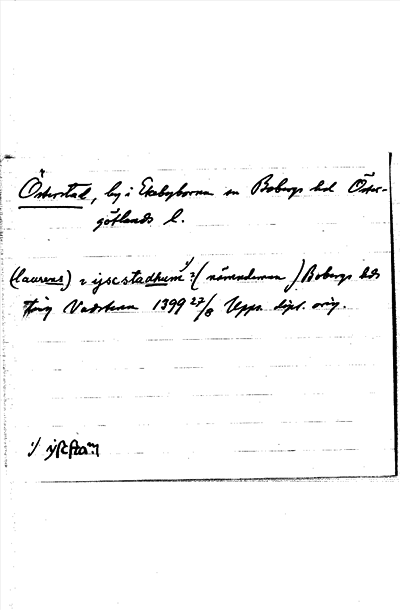 Österstad, by i Ekebyborna sn Bobergs hd Öster-
götlands l.
(laurens) i ysestadhum ( nämndeman ) Bobergs hds
ting Vadstena 1399 27/8 Upps. dipl. orig.